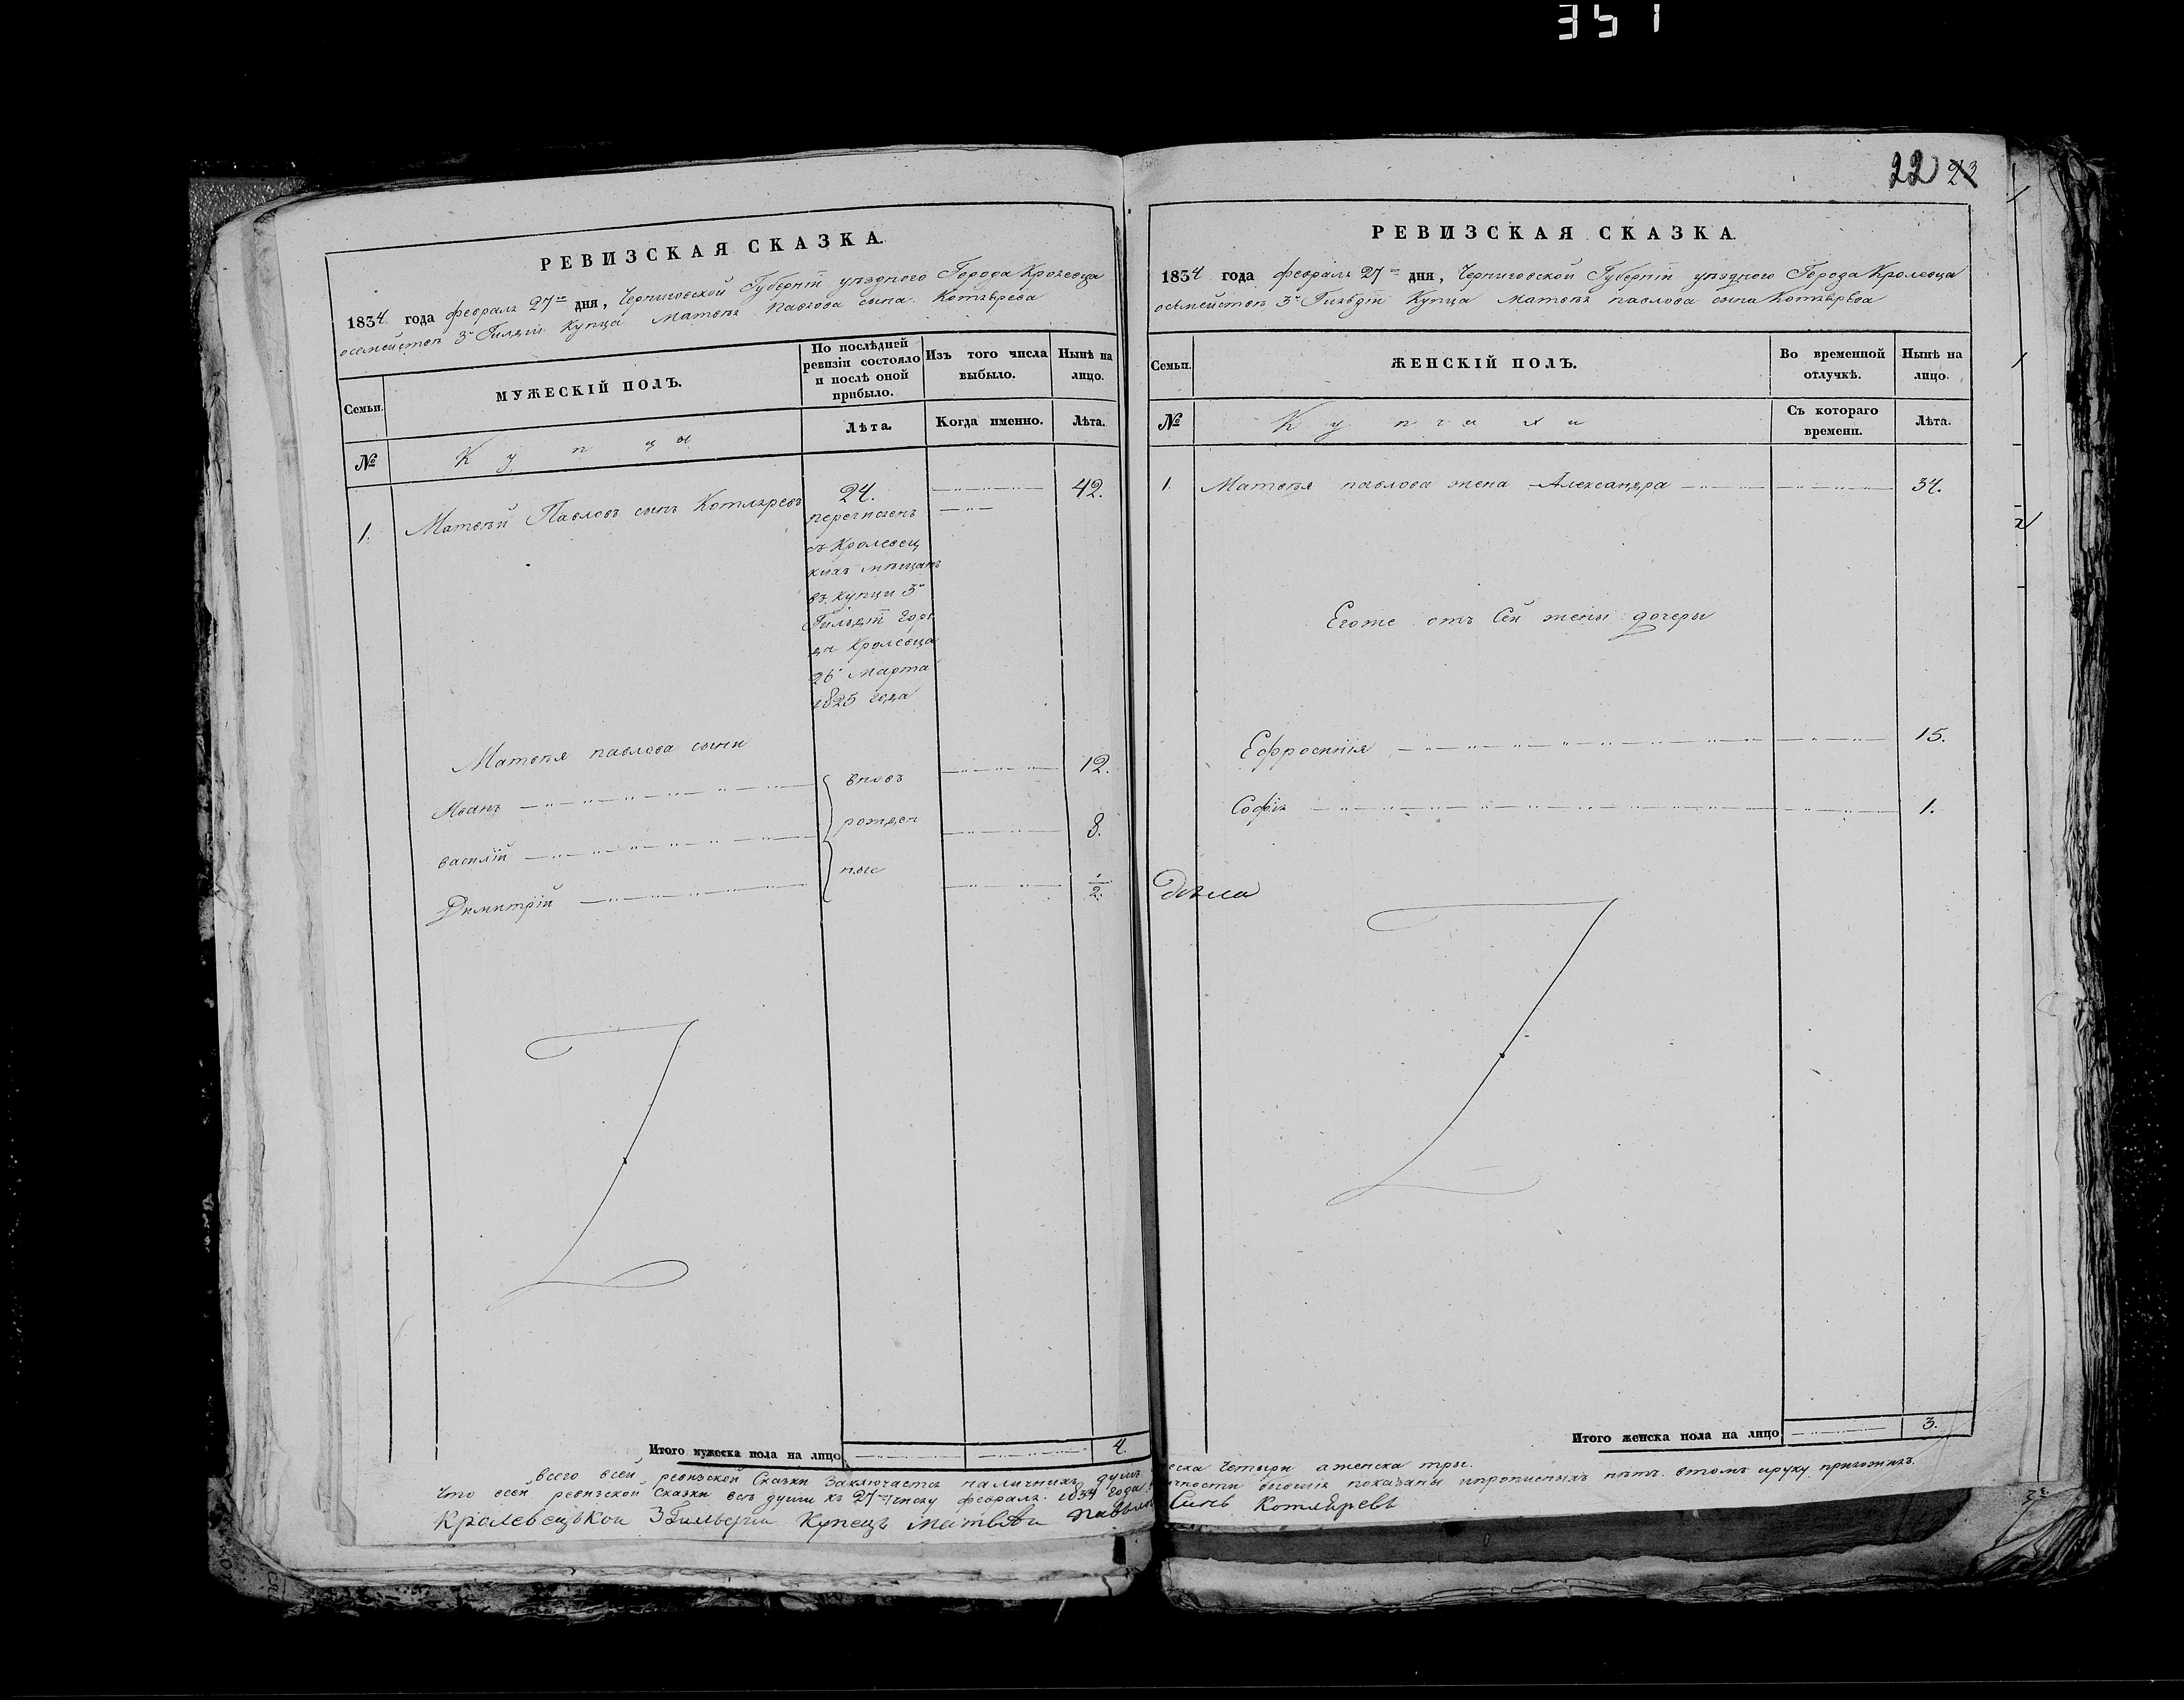 351
РЕВИЗСКАЯ СКАЗКА.
1834 года февраля 27го дня, Черниговской Губернїи уѣздного Города Кролевца
осемействѣ 3й Гилдїи Купца Матвѣя Павлова сына Котлярева
Семьи.
МУЖЕСКІЙ ПОЛЪ.
По послѣдней ревизіи состояло и послѣ оной прибыло.
Изъ того числа выбыло.
Нынѣ на лицо.
№
Купцы
Лѣта.
Когда именно.
Лѣта.
1. Матвѣй Павловъ сынъ Котляревъ 24. 42.
перечисленъ
съ Кролевец
кихъ мѣщанъ
въ купци 3й
Гильдїи горо
да Кролевца
26 Марта
1825 года
Матвѣя павлова сыни
Иванъ вновь 12.
василїй рожден 8.
Димитрїй ные 1/2.
Итого мужеска пола на лицо 4.
22 23
РЕВИЗСКАЯ СКАЗКА.
1834 года февраля 27го дня, Черниговской Губернїи уѣздного Города Кролевца
осемействѣ 3й Гильдїи Купца Матвѣя павлова сына Котлярева
Семьи.
ЖЕНСКІЙ ПОЛЪ.
Во временной отлучкѣ.
Нынѣ на лицо.
№
Купчихи
Съ котораго времени.
Лѣта.
1. Матвѣя павлова жена Александра 34.
Егоже отъ Сей жены дочеры
Ефросинїя 15.
Софїя 1.
Дѣла
Итого женска пола на лицо 3.
Всего всей ревизской Сказки Заключается наличнихъ душъ
еска Четыри аженска тры.
Что всей ревизской Сказки всѣ души къ 27му числу февраля 1834 года
показаны ипрописныхъ нѣтъ. втомъ ируку приложилъ.
Кролевецъкой 3 Гильдии Купецъ Матвѣи Павъловъ Синъ Котляревъ